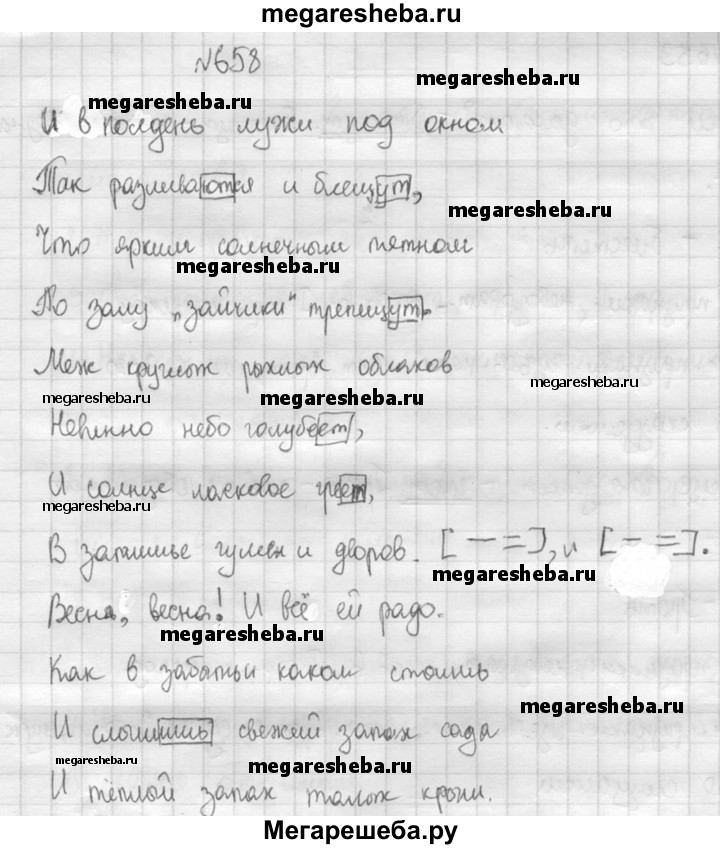 megaresheba.ru
№658
megaresheba.ru
megaresheba.ru
И в полдень лужи под окном
Так разливаются и блещут,
megaresheba.ru
Что ярким солнечным пятном
megaresheba.ru
По залу „зайчики" трепещут.
Меж круглых рыхлых облаков
megaresheba.ru
megaresheba.ru
megaresheba.ru
Невинно небо голубеет,
И солнце ласковое греет,
megaresheba.ru
В затишье гумен и дворов. [— =], и [— =].
megaresheba.ru
Весна, весна! И всё ей радо.
megaresheba.ru
Как в забытьи каком стоишь
megaresheba.ru
И слышишь свежий запах сада
megaresheba.ru
megaresheba.ru
И тёплый запах талых крыш.
Мегарешеба.ру